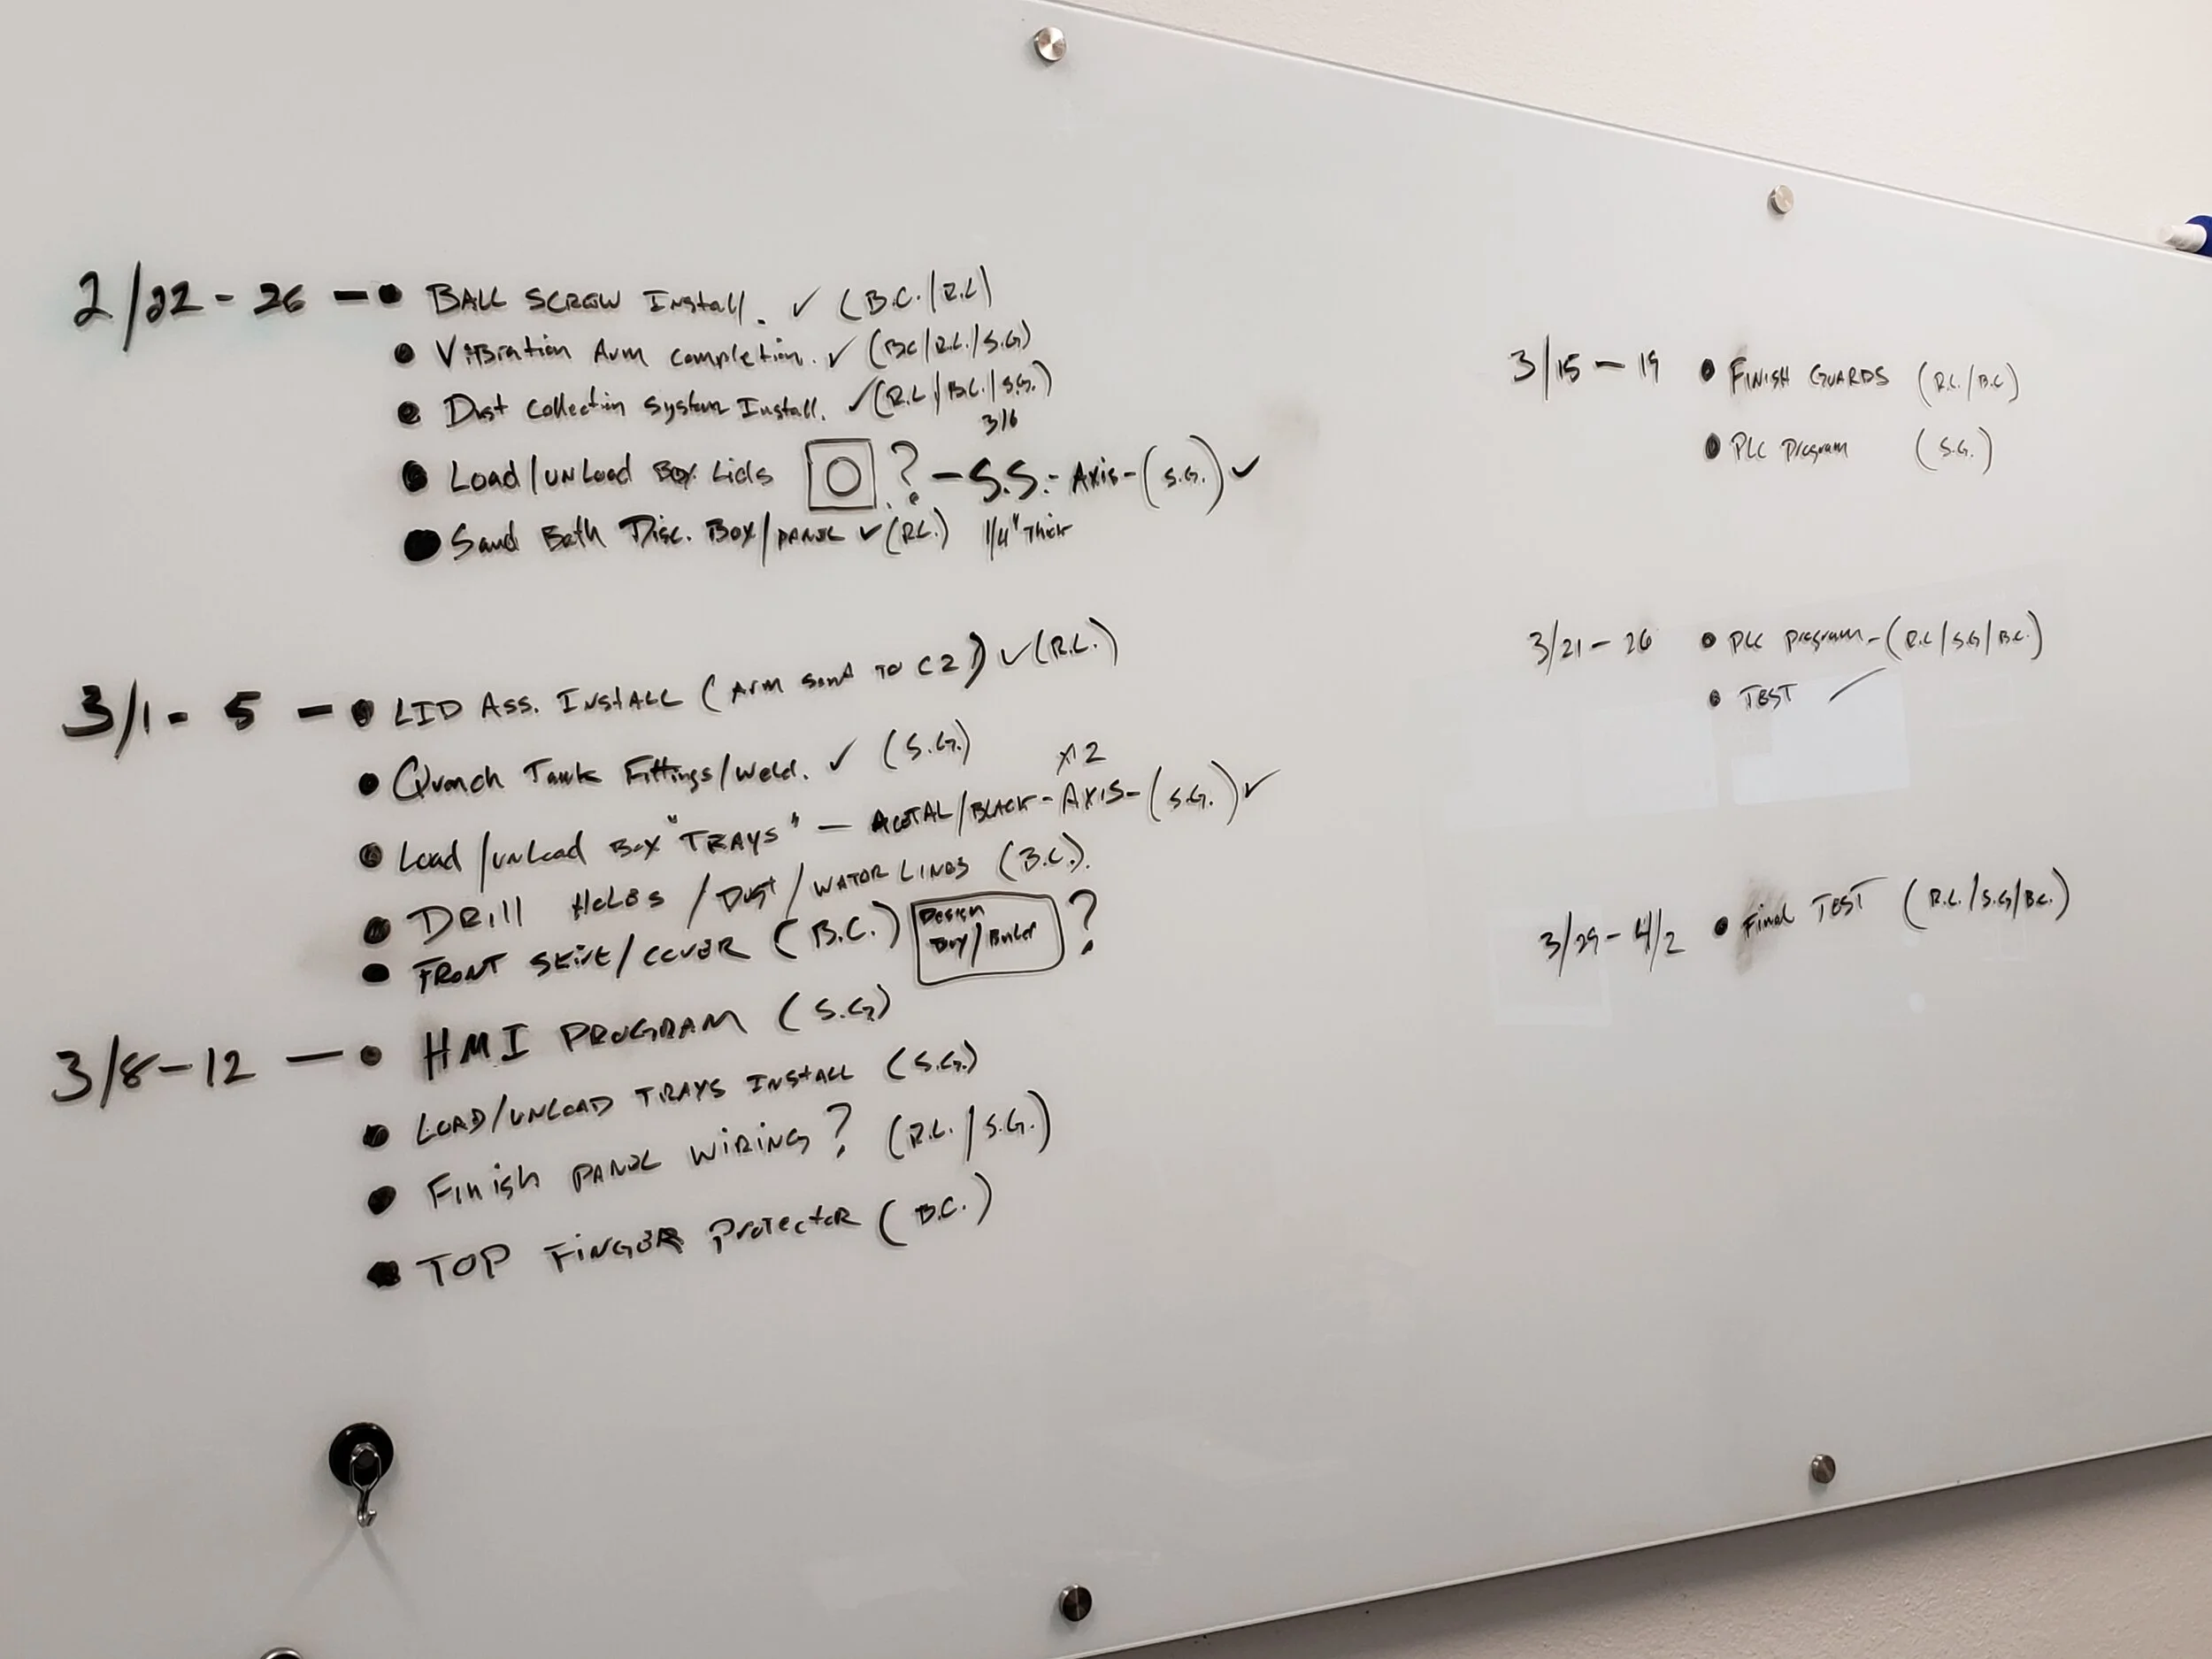 2/22 - 26 — • BALL SCREW Install. ✓ (B.C./R.L)
• Vibration Arm Completion. ✓ (BC/R.L./S.G)
• Dust Collection System Install. ✓ (R.L/B.C./S.G.)
3/6
• Load/unLoad Box Lids ? - S.S. - Axis - (S.G.) ✓
• Sand Bath Disc. Box/PANEL ✓ (R.L.) 1/4" Thick
3/1 - 5 — • LID ASS. INSTALL (Arm Send TO C2) ✓ (R.L.)
• Quench Tank Fittings/Weld. ✓ (S.G.)
x12
• Load/unLoad Box "TRAYS" — ACETAL/BLACK - AXIS - (S.G.) ✓
• DRill HOLES / DUST / WATER LINES (B.C.).
• FRONT SKIRT/COVER (B.C.) Design ?
Buy/Build
3/8 - 12 — • HMI PROGRAM (S.G)
• LOAD/UNLOAD TRAYS INSTALL (S.G.)
• Finish PANEL WIRING? (R.L./S.G.)
• TOP FINGER PROTECTOR (B.C.)
3/15 - 19 • FINISH GUARDS (R.L./B.C)
• PLC Program (S.G.)
3/21 - 26 • PLC Program - (R.L/S.G/B.C.)
• TEST
3/29 - 4/2 • Final TEST (R.L./S.G/B.C.)